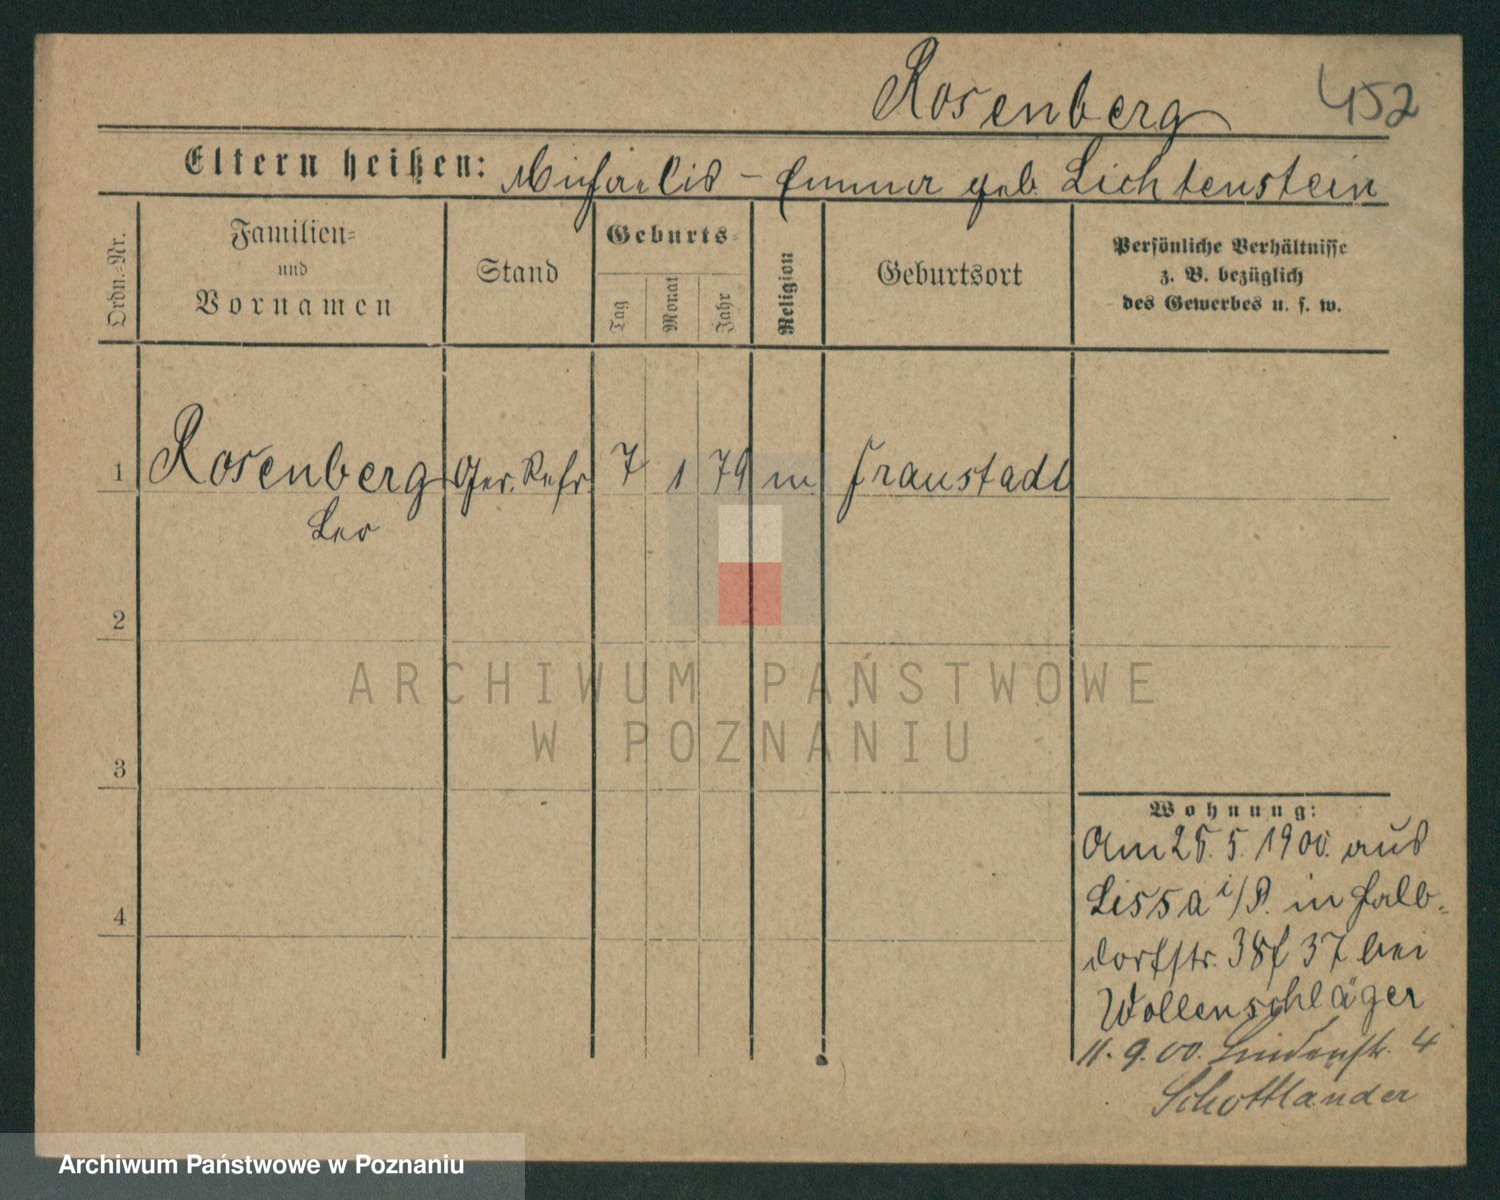 Rosenberg 452
Eltern heißen: Michaelis – Emma geb. Lichtenstein
Ordn.-Nr.
Familien-
und
Vornamen
Stand
Geburts-
Tag
Monat
Jahr
Religion
Geburtsort
Persönliche Verhältnisse
z. B. bezüglich
des Gewerbes u. s. w.
1 Rosenberg Ger. Refr. 7 1 79 m Fraustadt
Leo
2
ARCHIWUM PAŃSTWOWE
W POZNANIU
3
4
Wohnung:
Am 25. 5. 1900. aus
Lissa i/P. in Halb-
dorfstr. 37 bei
Wollenschläger
11. 9. 00. Lindenstr. 4
Schottländer
Archiwum Państwowe w Poznaniu